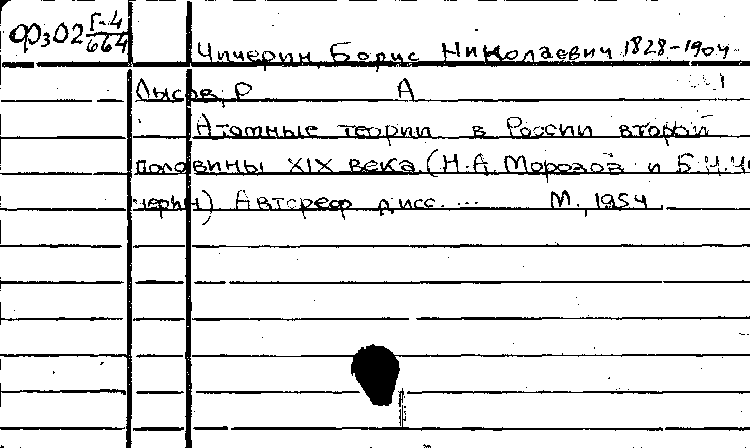 Фз02 Г-4/664
Чичерин, Борис Николаевич 1828-1904
Лысов, Р А
Атомные теории в России второй
половины XIX века. (Н.А. Морозов и Б.Н. Чи
черин) Автореф дисс. ... М., 1954.